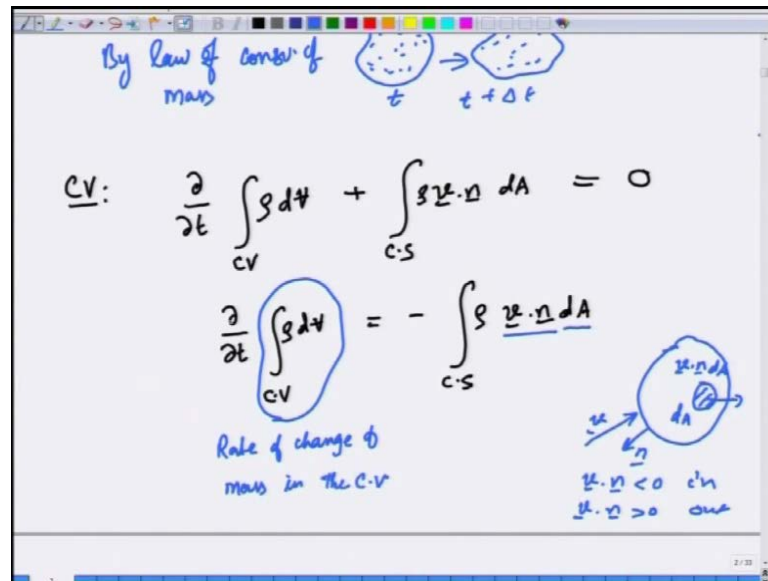 By law of consv. of
mass
t
t + Δt
CV: ∂/∂t ∫ ρ dV + ∫ ρ v.n dA = 0
CV
C.S
∂/∂t ∫ ρ dV = - ∫ ρ v.n dA
C.V
C.S
Rate of change of
mass in the C.V
v.n dA
dA
v
n
v.n <0 in
v.n >0 out
2/33